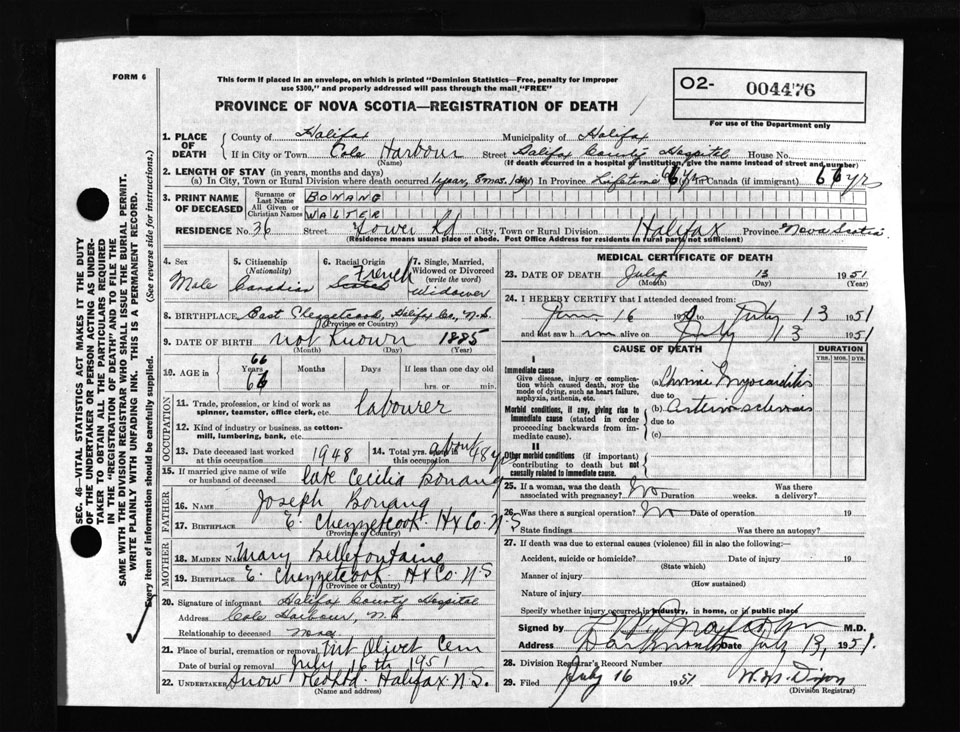 FORM 6
This form if placed in an envelope, on which is printed "Dominion Statistics—Free, penalty for improper
use $300," and properly addressed will pass through the mail "FREE"
PROVINCE OF NOVA SCOTIA—REGISTRATION OF DEATH
O2- 004476
For use of the Department only
SEC. 46—VITAL STATISTICS ACT MAKES IT THE DUTY
OF THE UNDERTAKER OR PERSON ACTING AS UNDER-
TAKER TO OBTAIN ALL THE PARTICULARS REQUIRED
IN THE "REGISTRATION OF DEATH" AND TO FILE THE
SAME WITH THE DIVISION REGISTRAR WHO SHALL ISSUE THE BURIAL PERMIT.
WRITE PLAINLY WITH UNFADING INK. THIS IS A PERMANENT RECORD.
Every item of information should be carefully supplied. (See reverse side for instructions.)
1. PLACE OF DEATH
County of Halifax Municipality of Halifax
If in City or Town Cole Harbour Street Halifax County Hospital House No.
(Name) (If death occurred in a hospital or institution, give the name instead of street and number)
2. LENGTH OF STAY (in years, months and days)
(a) In City, Town or Rural Division where death occurred 1 year, 8 mos. 1 day In Province Lifetime 66 yrs Canada (if immigrant) 66 yrs
3. PRINT NAME OF DECEASED
Surname or Last Name BONANG
All Given or Christian Names WALTER
RESIDENCE No. 36 Street Gower Rd City, Town or Rural Division Halifax Province Nova Scotia
(Residence means usual place of abode. Post Office Address for residents in rural parts not sufficient)
4. Sex Male
5. Citizenship (Nationality) Canadian
6. Racial Origin French Scotch
7. Single, Married, Widowed or Divorced (write the word) Widower
8. BIRTHPLACE East Chezzetcook, Halifax Co., N.S.
(Province or Country)
9. DATE OF BIRTH not known 1885
(Month) (Day) (Year)
10. AGE in 66 Years Months Days If less than one day old
66 hrs. or min.
OCCUPATION
11. Trade, profession, or kind of work as
spinner, teamster, office clerk, etc. Labourer
12. Kind of industry or business, as cotton-
mill, lumbering, bank, etc.
13. Date deceased last worked
at this occupation 1948
14. Total yrs. spent in
this occupation about 48 yrs
15. If married give name of wife
or husband of deceased late Cecilia Bonang
FATHER
16. Name Joseph Bonang
17. Birthplace E. Chezzetcook Hx Co. N.S
(Province or Country)
MOTHER
18. Maiden Name Mary Bellefontaine
19. Birthplace E. Chezzetcook Hx Co. N S
(Province or Country)
20. Signature of informant Halifax County Hospital
Address Cole Harbour, N.S
Relationship to deceased None
21. Place of burial, cremation or removal Mt Olivet Cem
Date of burial or removal July 16th 1951
22. Undertaker Snow & Co Ltd. Halifax N.S.
(Name and address)
MEDICAL CERTIFICATE OF DEATH
23. DATE OF DEATH July 13 1951
(Month) (Day) (Year)
24. I HEREBY CERTIFY that I attended deceased from:
16 to July 13 1951
and last saw h im alive on July 13 1951
CAUSE OF DEATH
DURATION
YRS. MOS. DYS.
I
Immediate cause
Give disease, injury or complica-
tion which caused death, NOT the
mode of dying, such as heart failure,
asphyxia, asthenia, etc.
(a) Chronic Myocarditis
due to
Morbid conditions, if any, giving rise to
immediate cause (stated in order
proceeding backwards from im-
mediate cause).
(b) Arteriosclerosis
due to
(c)
II
Other morbid conditions (if important)
contributing to death but not
causally related to immediate cause.
25. If a woman, was the death
associated with pregnancy? No Duration weeks. Was there
a delivery?
26. Was there a surgical operation? No Date of operation 19
State findings Was there an autopsy?
27. If death was due to external causes (violence) fill in also the following:
Accident, suicide or homicide? Date of injury 19
(State which)
Manner of injury
(How sustained)
Nature of injury
Specify whether injury occurred in industry, in home, or in public place
Signed by M.D.
Address Dartmouth July 13, 1951.
28. Division Registrar's Record Number
29. Filed July 16 1951 W. M. Dixon
(Division Registrar)